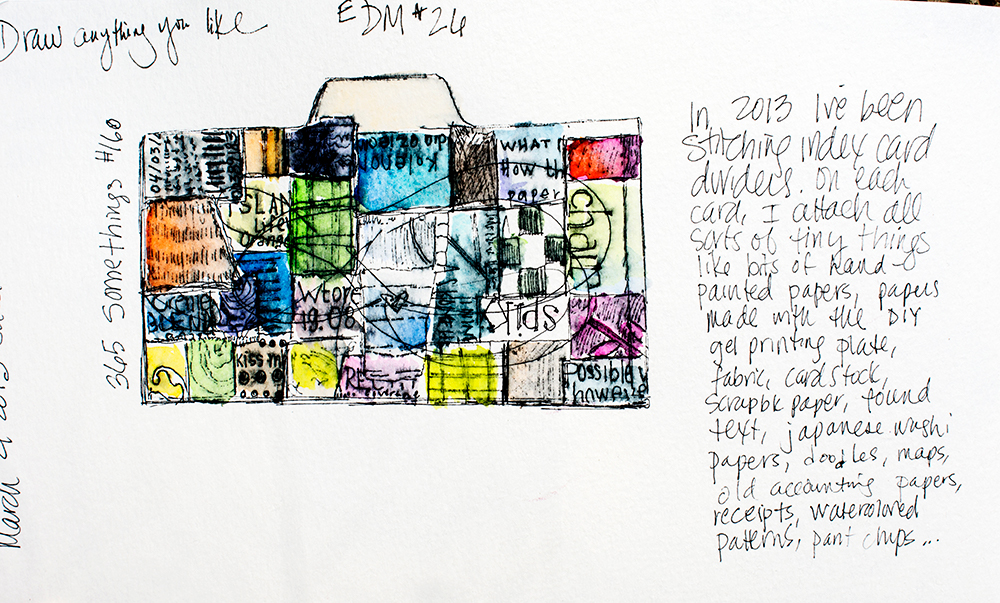 Draw anything you like
EDM #26
365 Somethings #160
In 2013 I've been
stitching index card
dividers. On each
card, I attach all
sorts of tiny things
like bits of hand-
painted papers, papers
made with the DIY
gel printing plate,
fabric, cardstock,
scrapbk paper, found
text, japanese washi
papers, doodles, maps,
old accounting papers,
receipts, watercolored
patterns, paint chips...
04/03/
WHAT I
How th
paper
ISLAN
Life
Orange
chalk
kids
BLEN
19.08
KISS MY
Possible
howeve
March 21 2013